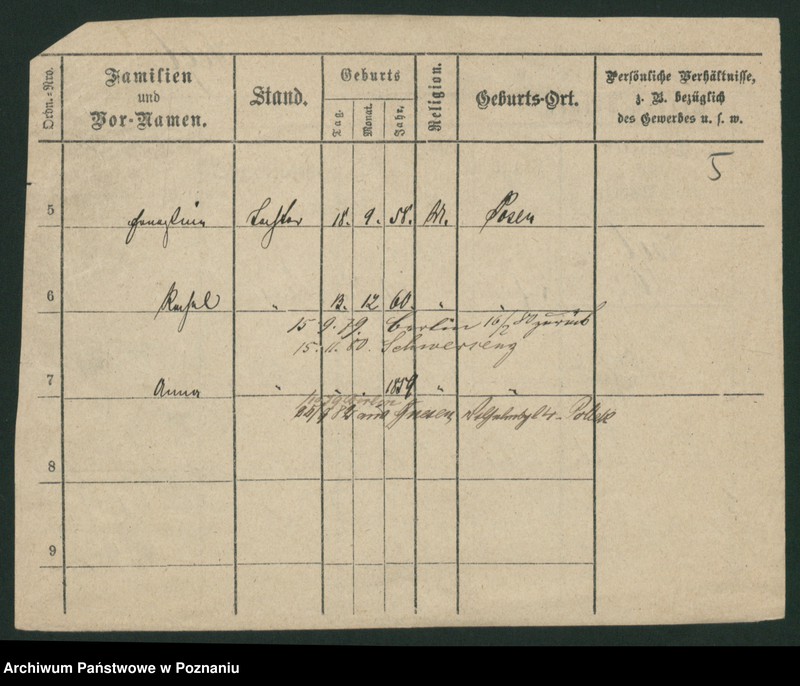 Ordn.-Nro.
Familien und Vor-Namen.
Stand.
Geburts
Tag.
Monat.
Jahr.
Religion.
Geburts-Ort.
Persönliche Verhältnisse, z. B. bezüglich des Gewerbes u. s. w.
5
5 Ernestine Tochter 18. 9. 58. M. Posen
6 Rahel " 13. 12 60. " "
15 9. 79. Berlin 16/2 80 zurück
15. 11. 80. Schwersenz
7 Anna " " . 1859 " "
Gnesen
8
9
Archiwum Państwowe w Poznaniu